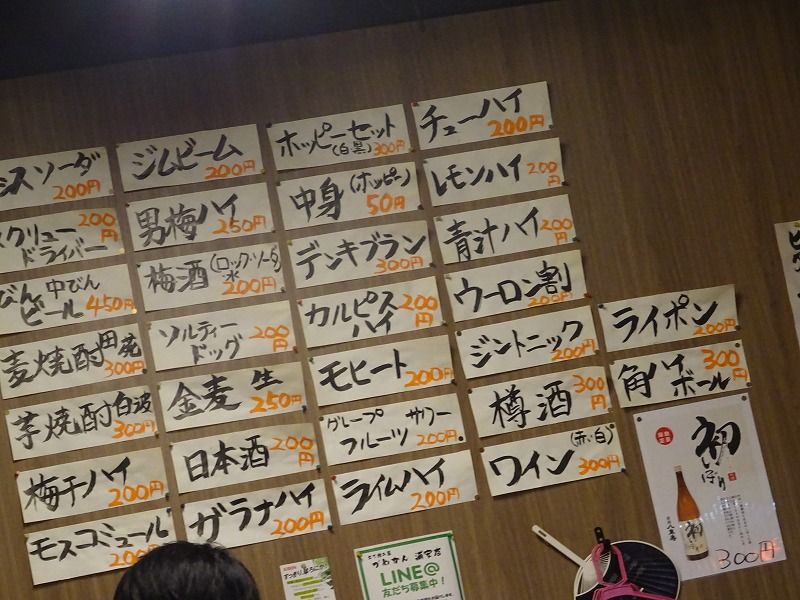 チューハイ
200円
レモンハイ
200円
青汁ハイ
200円
ウーロン割
200円
ジントニック
200円
樽酒
300円
ワイン (赤・白)
300円
ライポン
200円
角ハイボール
300円
ホッピーセット
(白・黒) 300円
中身(ホッピー)
50円
デンキブラン
300円
カルピスハイ
200円
モヒート
200円
グレープ サワー
フルーツ 200円
ライムハイ
200円
ジムビーム
200円
男梅ハイ
250円
梅酒(ロック・ソーダ
水
200円
ソルティー
ドッグ
200円
金麦 生
250円
日本酒
200円
ガラナハイ
200円
スソーダ
200円
スクリュー
ドライバー
200円
びん中びん
ビール 450円
麦焼酎
300円
芋焼酎 白波
300円
梅干ハイ
200円
モスコミュール
200
初
300円
LINE@
友だち募集中!